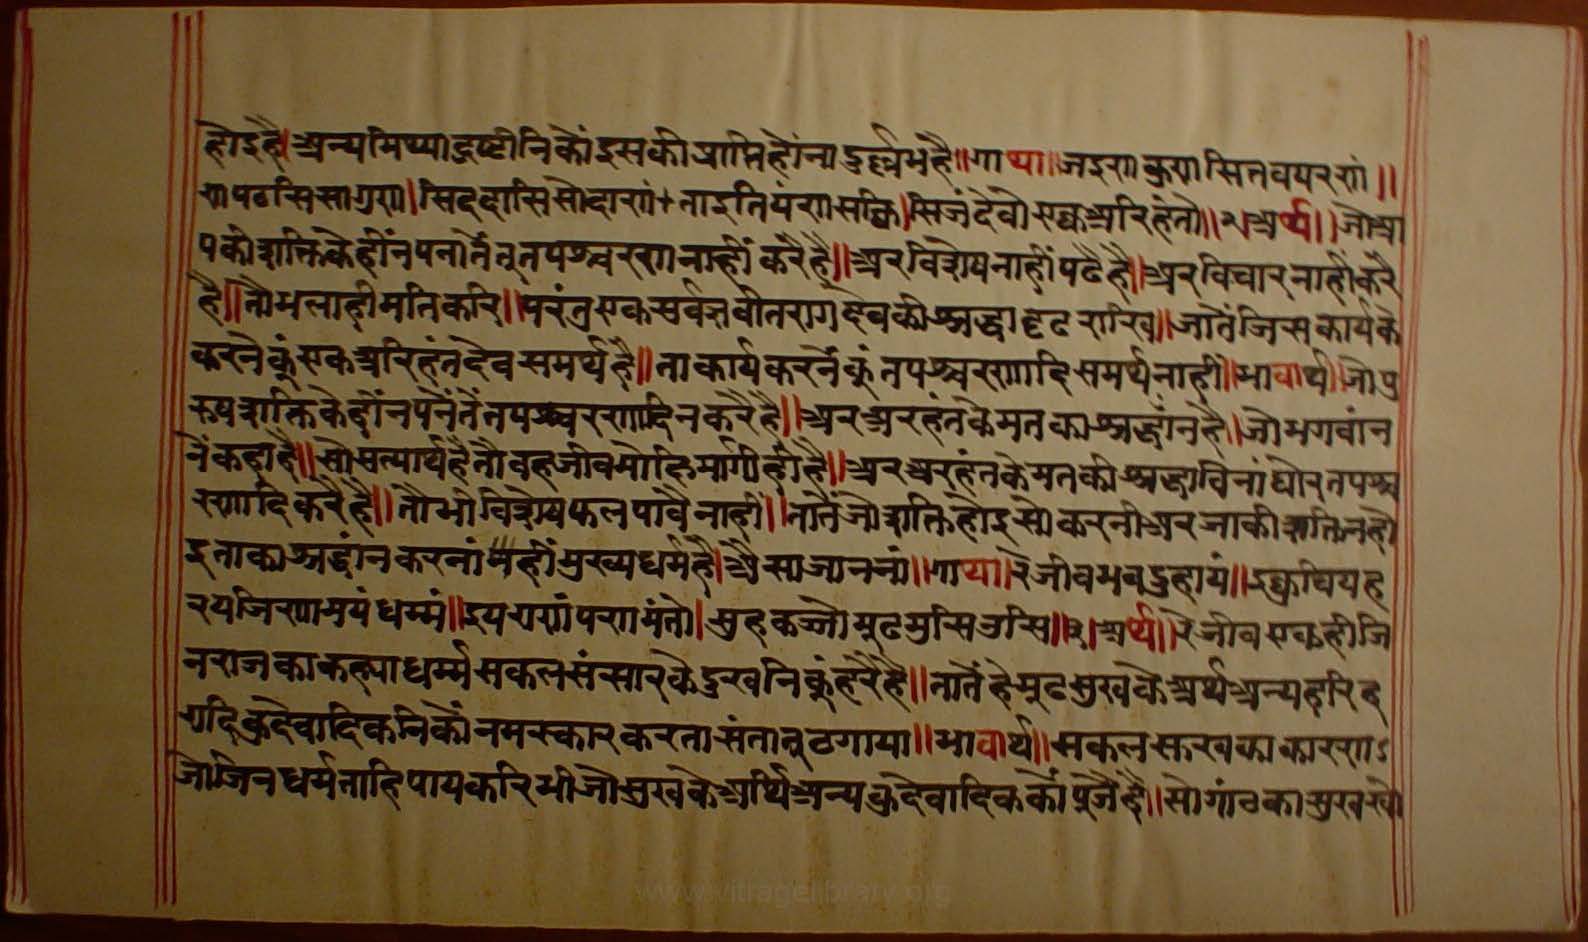 होइहै॥ अन्यमिथ्यादृष्टीनिकौं इसकी प्राप्ति होंना दुर्ल्लभहै॥ गाथा॥ जइण कुणसि तवयरणं॥
ण पढसि ण गुणसि ददासि णो दाणं॥ ता इतियं ण सक्किसि जं देवो एक्क अरिहंतो॥२॥ अर्थ॥ जो आ
पकी शक्ति के हीनपनातैं तू तपश्चरण नाहीं करै है॥ अर विशेष नाहीं पढै है॥ अर विचार नाहीं करै
है॥ तौ भलाही मति करि॥ परंतु एक सर्वज्ञ वीतराग देवकी श्रद्धा दृढ राखि॥ जातैं जिस कार्यके
करने कूं एक अरिहंतदेव समर्थ है॥ ता कार्य करनें कूं तपश्चरणादि समर्थ नाहीं॥ भावार्थ॥ जो पु
रुष शक्ति के हीनपनैंतैं तपश्चरणादि न करै है॥ अर अरहंतके मतका श्रद्धांन है॥ जो भगवांन
नैं कहा है॥ सो सत्यार्थ है तौ वह जीव मोक्षिमार्गी ही है॥ अर अरहंतके मतकी श्रद्धा विनां घोर तपश्च
रणादि करै है॥ तौ भी विशेष फल पावै नाहीं॥ तातैं जो शक्ति होइ सो करनी अर जाकी शक्ति न हो
इ ताका श्रद्धांन करनां मही मुख्य धर्म है॥ अैसा जाननां॥ गाथा॥ रे जीव भव दुहायं॥ इक्कचिय ह
रय जिणमयं धम्मं॥ इयराणं पणमंतो॥ सुह कज्जे मूढ मुसिउसि॥३॥ अर्थ॥ रे जीव एकही जि
नराजका कह्या धर्म्म सकल संसारके दुखनिकूं हरै है॥ तातैं हे मूढ सुखकै अर्थ अन्य हरिह
रादि कुदेवादिकनिकौं नमस्कार करता संता तू ठगाया॥ भावार्थ॥ सकल सुखका कारण
जो जिनधर्म ताहि पायकरि भी जो सुखके अर्थि अन्य कुदेवादिककौं पूजै है॥ सो गांठका सुख खो
www.vitragelibrary.org